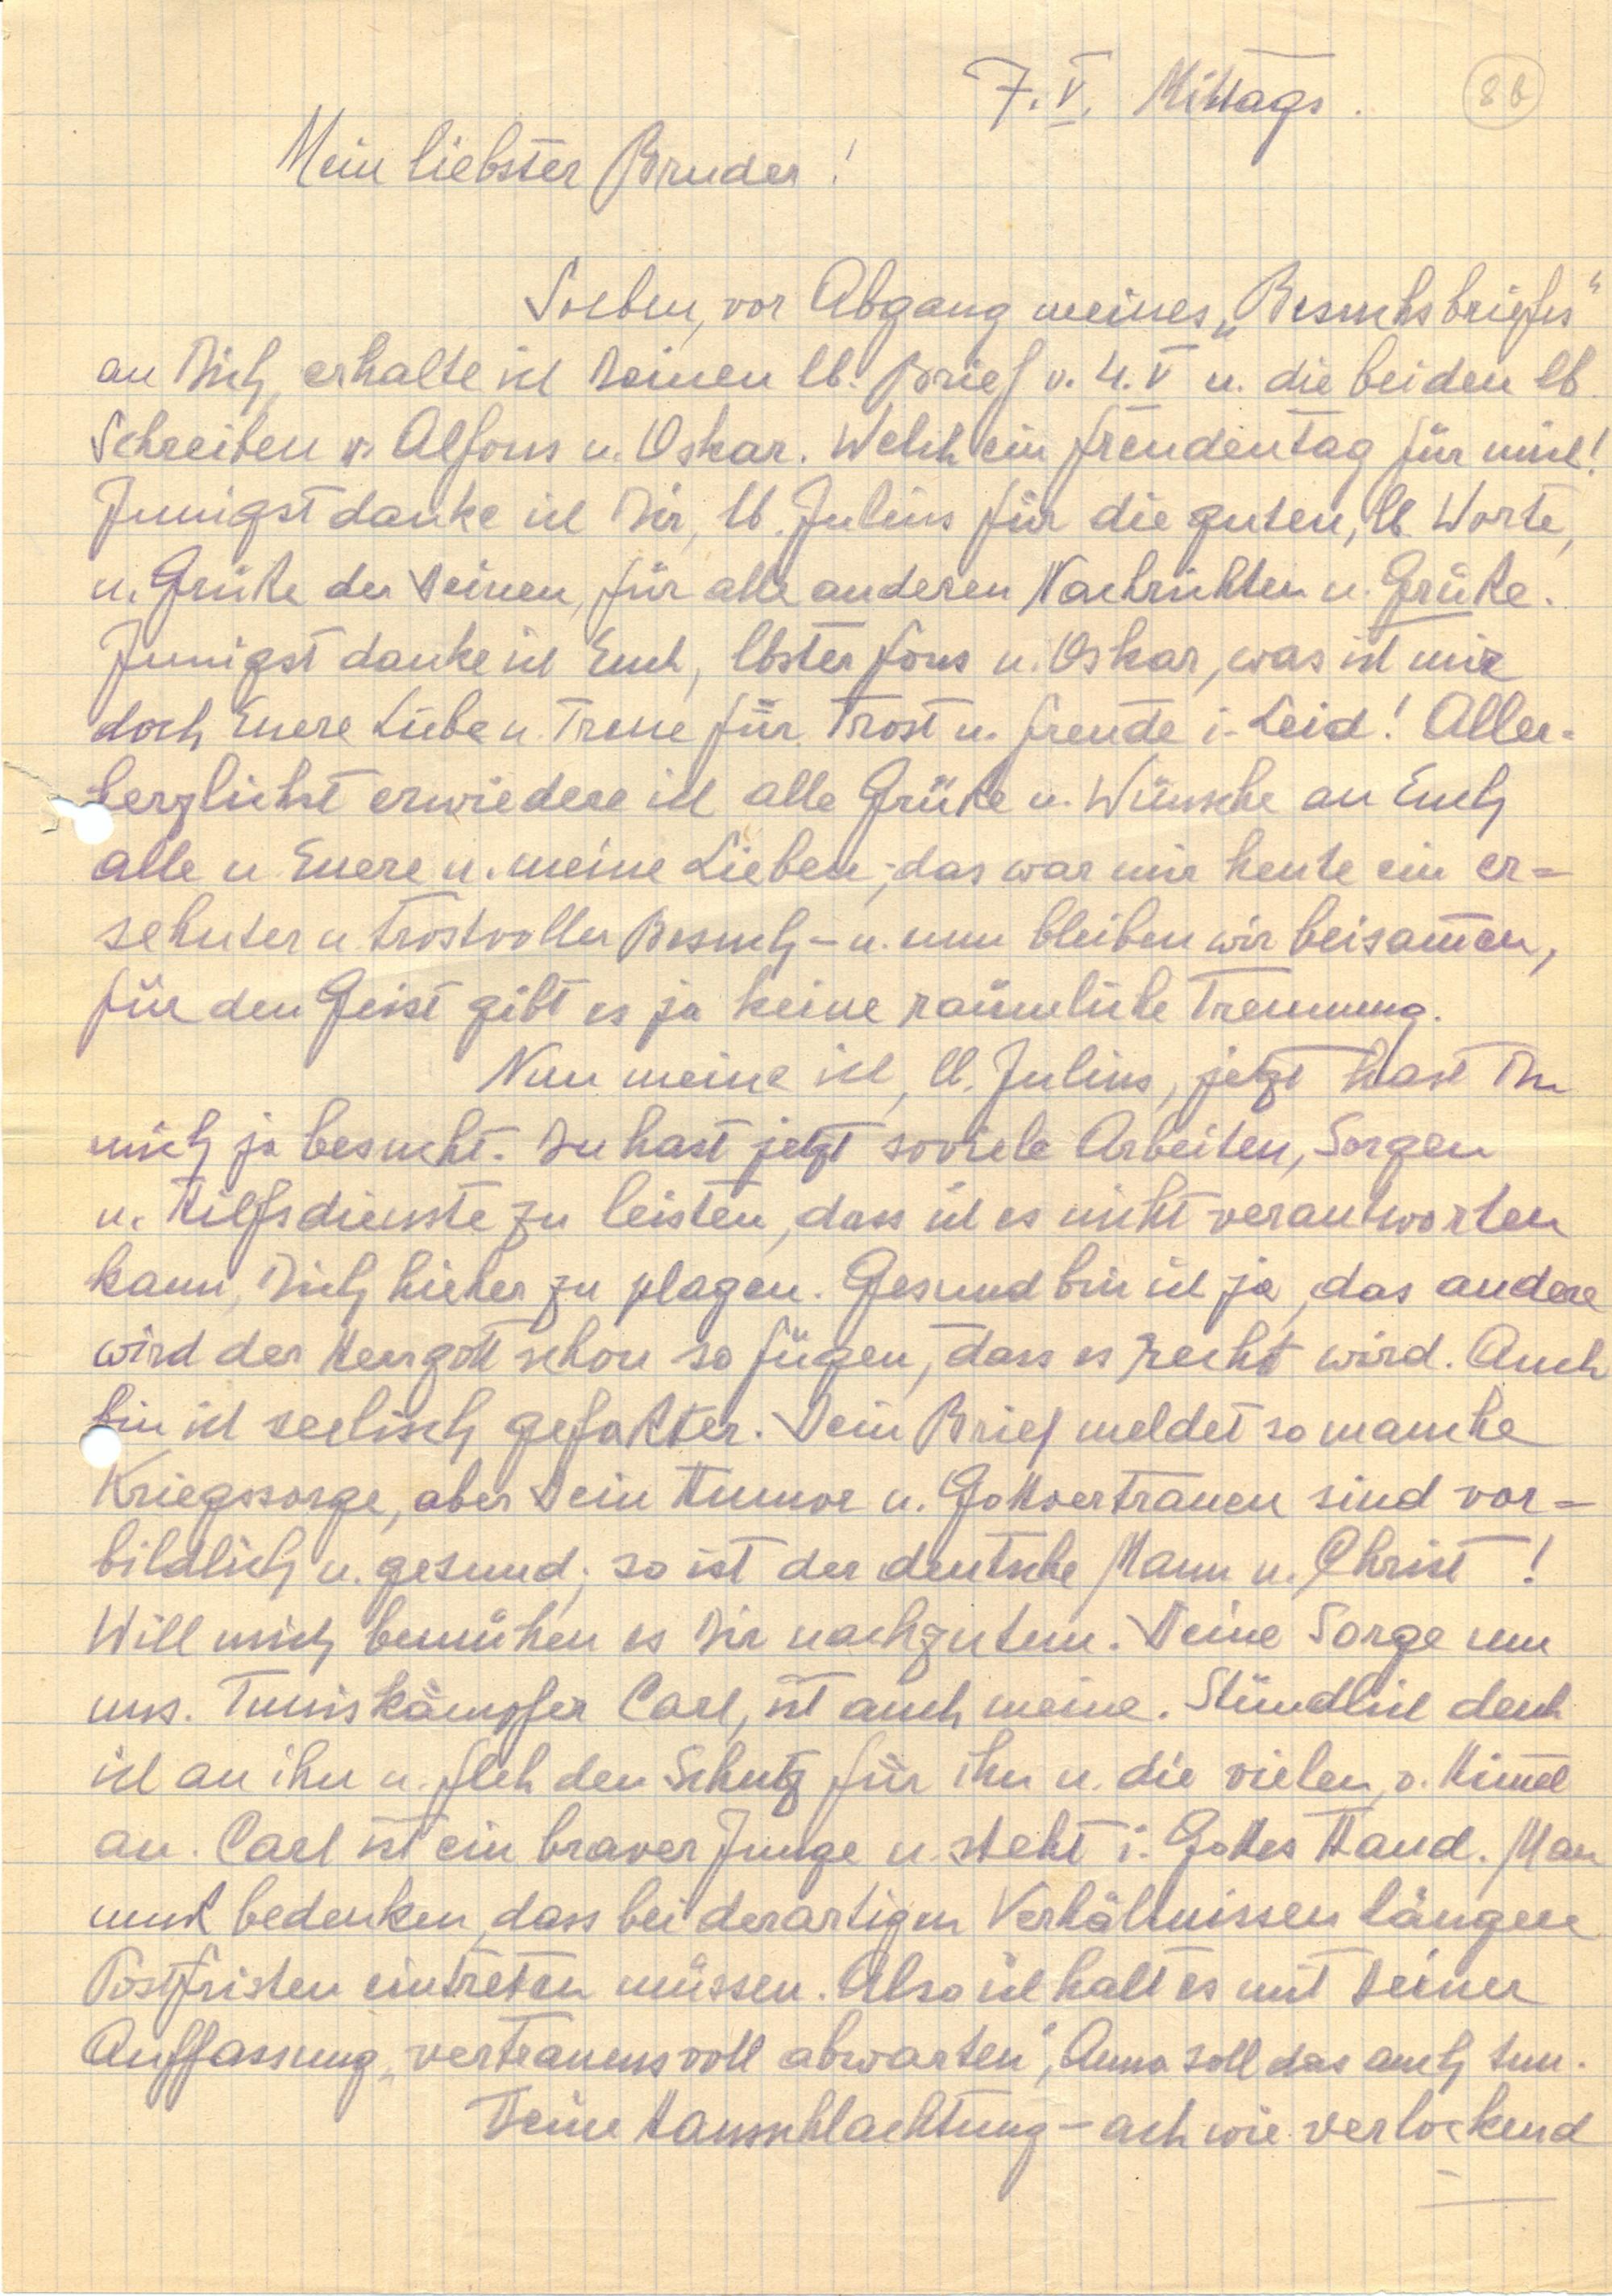 7. V. Mittags.
8b
Mein liebster Bruder!
Soeben, vor Abgang meines „Besuchsbriefes"
an Dich, erhalte ich Deinen lb. Brief v. 4. V u. die beiden lb.
Schreiben v. Alfons u. Oskar. Welch ein Freudentag für mich!
Innigst danke ich Dir, lb. Julius für die guten, lb. Worte,
u. Grüße der Deinen, für alle anderen Nachrichten u. Grüße.
Innigst danke ich Euch, lbster Fons u. Oskar, was ist mir
doch Euere Liebe u. Treue für Trost u. Freude i. Leid! Aller-
herzlichst erwiedere ich alle Grüße u. Wünsche an Euch
alle u Euere u. meine Lieben; das war mir heute ein er=
sehnter u. trostvoller Besuch – u. nun bleiben wir beisam̅en,
für den Geist gibt es ja keine räumliche Trennung.
Nun meine ich, lb. Julius, jetzt hast Du
mich ja besucht. Du hast jetzt soviele Arbeiten, Sorgen
u. Hilfsdienste zu leisten, dass ich es nicht verantworten
kann, Dich hieher zu plagen. Gesund bin ich ja, das andere
wird der Herrgott schon so fügen, dass es recht wird. Auch
bin ich seelisch gefaßter. Dein Brief meldet so manche
Kriegssorge, aber Dein Humor u. Gottvertrauen sind vor=
bildlich u. gesund; so ist der deutsche Mann u. Christ!
Will mich bemühen es Dir nachzutun. Deine Sorge um
uns. Tuniskämpfer Carl, ist auch meine. Stündlich denk
ich an ihn u. fleh den Schutz für ihn u. die vielen, v. Him̅el
an. Carl ist ein braver Junge u. steht i. Gottes Hand. Man
muß bedenken, dass bei derartigen Verhältnissen längere
Postfristen eintreten müssen. Also ich halt es mit Deiner
Auffassung „vertrauensvoll abwarten", Anna soll das auch tun.
Deine Hausschlachtung – ach wie verlockend